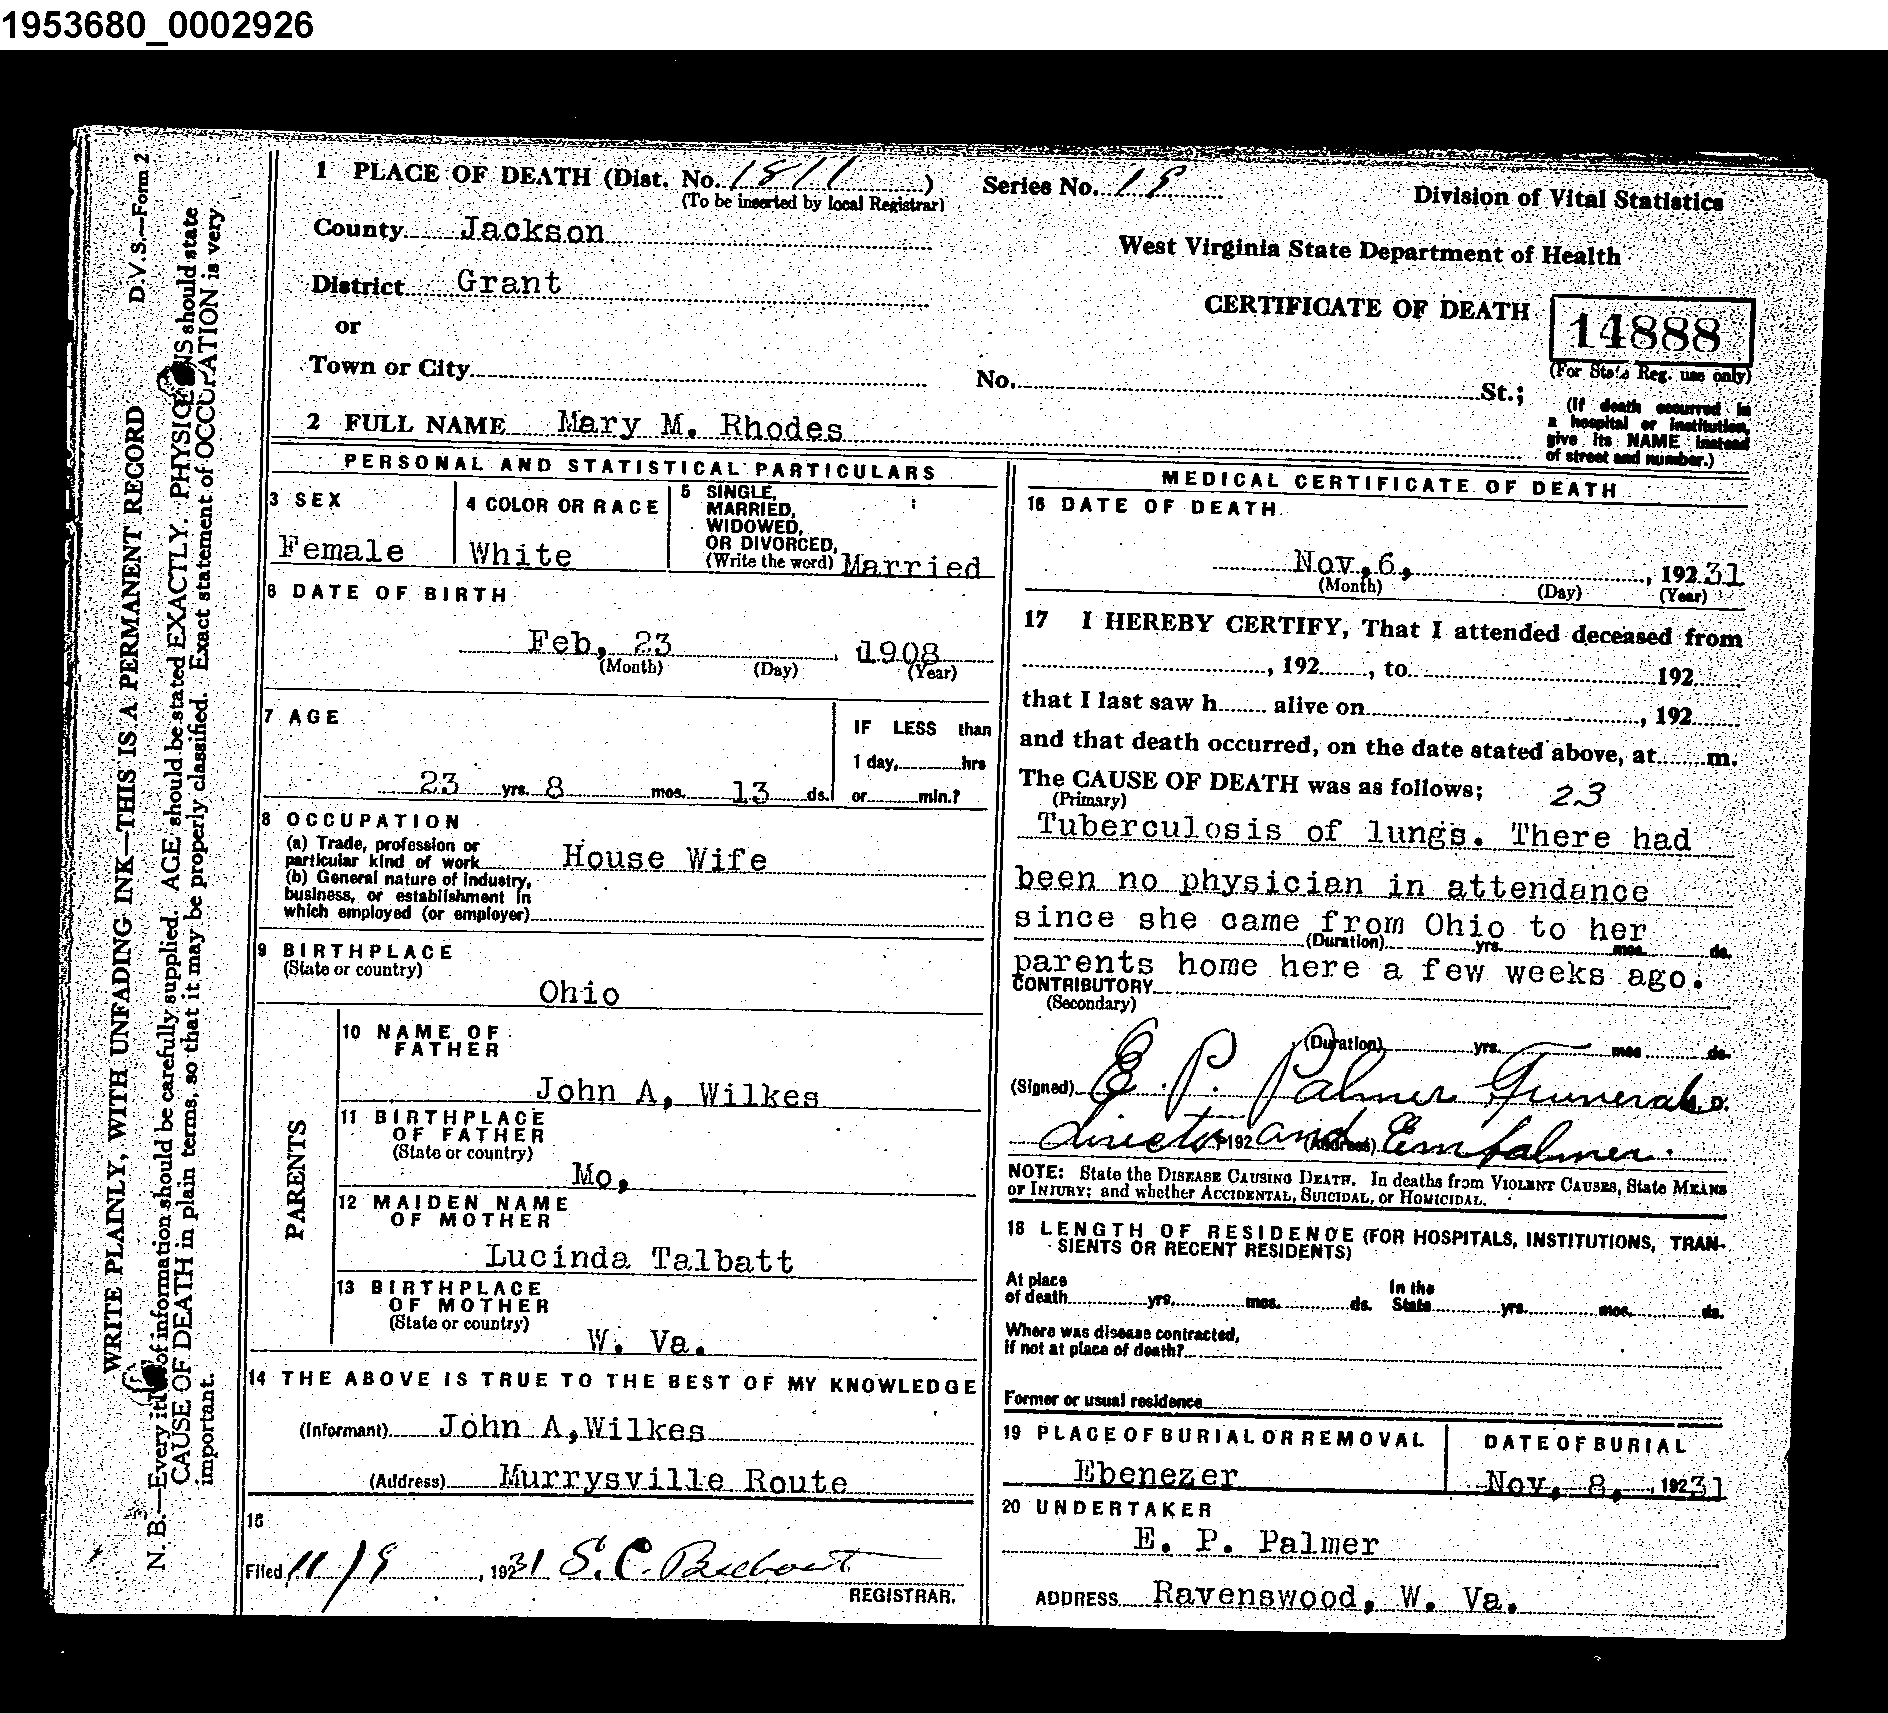 1953680_0002926
D.V.S.—Form 2
WRITE PLAINLY, WITH UNFADING INK—THIS IS A PERMANENT RECORD
N. B.—Every item of information should be carefully supplied. AGE should be stated EXACTLY. PHYSICIANS should state
CAUSE OF DEATH in plain terms, so that it may be properly classified. Exact statement of OCCUPATION is very
important.
1 PLACE OF DEATH (Dist. No. 1811) Series No. 19
(To be inserted by local Registrar)
Division of Vital Statistics
County Jackson
West Virginia State Department of Health
District Grant
CERTIFICATE OF DEATH
14888
(For State Reg. use only)
or
Town or City No. St.;
(If death occurred in
a hospital or institution,
give its NAME instead
of street and number.)
2 FULL NAME Mary M. Rhodes
PERSONAL AND STATISTICAL PARTICULARS
3 SEX
Female
4 COLOR OR RACE
White
5 SINGLE,
MARRIED,
WIDOWED,
OR DIVORCED,
(Write the word) Married
6 DATE OF BIRTH
Feb, 23, 1908
(Month) (Day) (Year)
7 AGE
23 yrs. 8 mos. 13 ds.
IF LESS than
1 day, hrs
or min.?
8 OCCUPATION
(a) Trade, profession or
particular kind of work House Wife
(b) General nature of Industry,
business, or establishment in
which employed (or employer)
9 BIRTHPLACE
(State or country)
Ohio
PARENTS
10 NAME OF
FATHER
John A, Wilkes
11 BIRTHPLACE
OF FATHER
(State or country)
Mo,
12 MAIDEN NAME
OF MOTHER
Lucinda Talbatt
13 BIRTHPLACE
OF MOTHER
(State or country)
W. Va.
14 THE ABOVE IS TRUE TO THE BEST OF MY KNOWLEDGE
(Informant) John A,Wilkes
(Address) Murrysville Route
15
Filed 11/9, 19231 S. C.
REGISTRAR.
MEDICAL CERTIFICATE OF DEATH
16 DATE OF DEATH
Nov,6, , 19231
(Month) (Day) (Year)
17 I HEREBY CERTIFY, That I attended deceased from
, 192 , to 192
that I last saw h alive on , 192
and that death occurred, on the date stated above, at m.
The CAUSE OF DEATH was as follows; 23
(Primary)
Tuberculosis of lungs. There had
been no physician in attendance
since she came from Ohio to her
(Duration) yrs. mos. ds.
parents home here a few weeks ago.
CONTRIBUTORY
(Secondary)
(Duration) yrs. mos ds.
(Signed) E. P. Palmer Funeral M.D.
director, 192 and (Address) Embalmer.
NOTE: State the DISEASE CAUSING DEATH. In deaths from VIOLENT CAUSES, State MEANS
OF INJURY; and whether ACCIDENTAL, SUICIDAL, or HOMICIDAL.
18 LENGTH OF RESIDENCE (FOR HOSPITALS, INSTITUTIONS, TRAN-
SIENTS OR RECENT RESIDENTS)
At place
of death yrs. mos. ds.
In the
State yrs. mos. ds.
Where was disease contracted,
if not at place of death?
Former or usual residence
19 PLACE OF BURIAL OR REMOVAL
Ebenezer
DATE OF BURIAL
Nov, 8, , 19231
20 UNDERTAKER
E. P. Palmer
ADDRESS Ravenswood, W. Va.